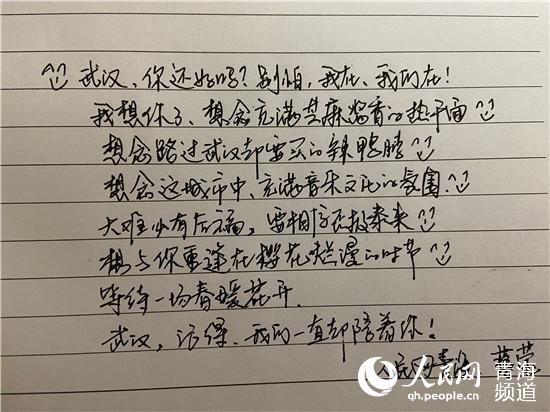 武汉、你还好吗？别怕，我在、我们在！
我想你了、想念充满芝麻酱香的热干面
想念路过武汉都要买的辣鸭脖
想念这城市中、充满音乐文化的氛围
大难必有后福，要相信否极泰来
想与你重逢在樱花烂漫的时节
等待一场春暖花开.
武汉，记得、我们一直都陪着你！
人民网 青海频道
qh.people.com.cn